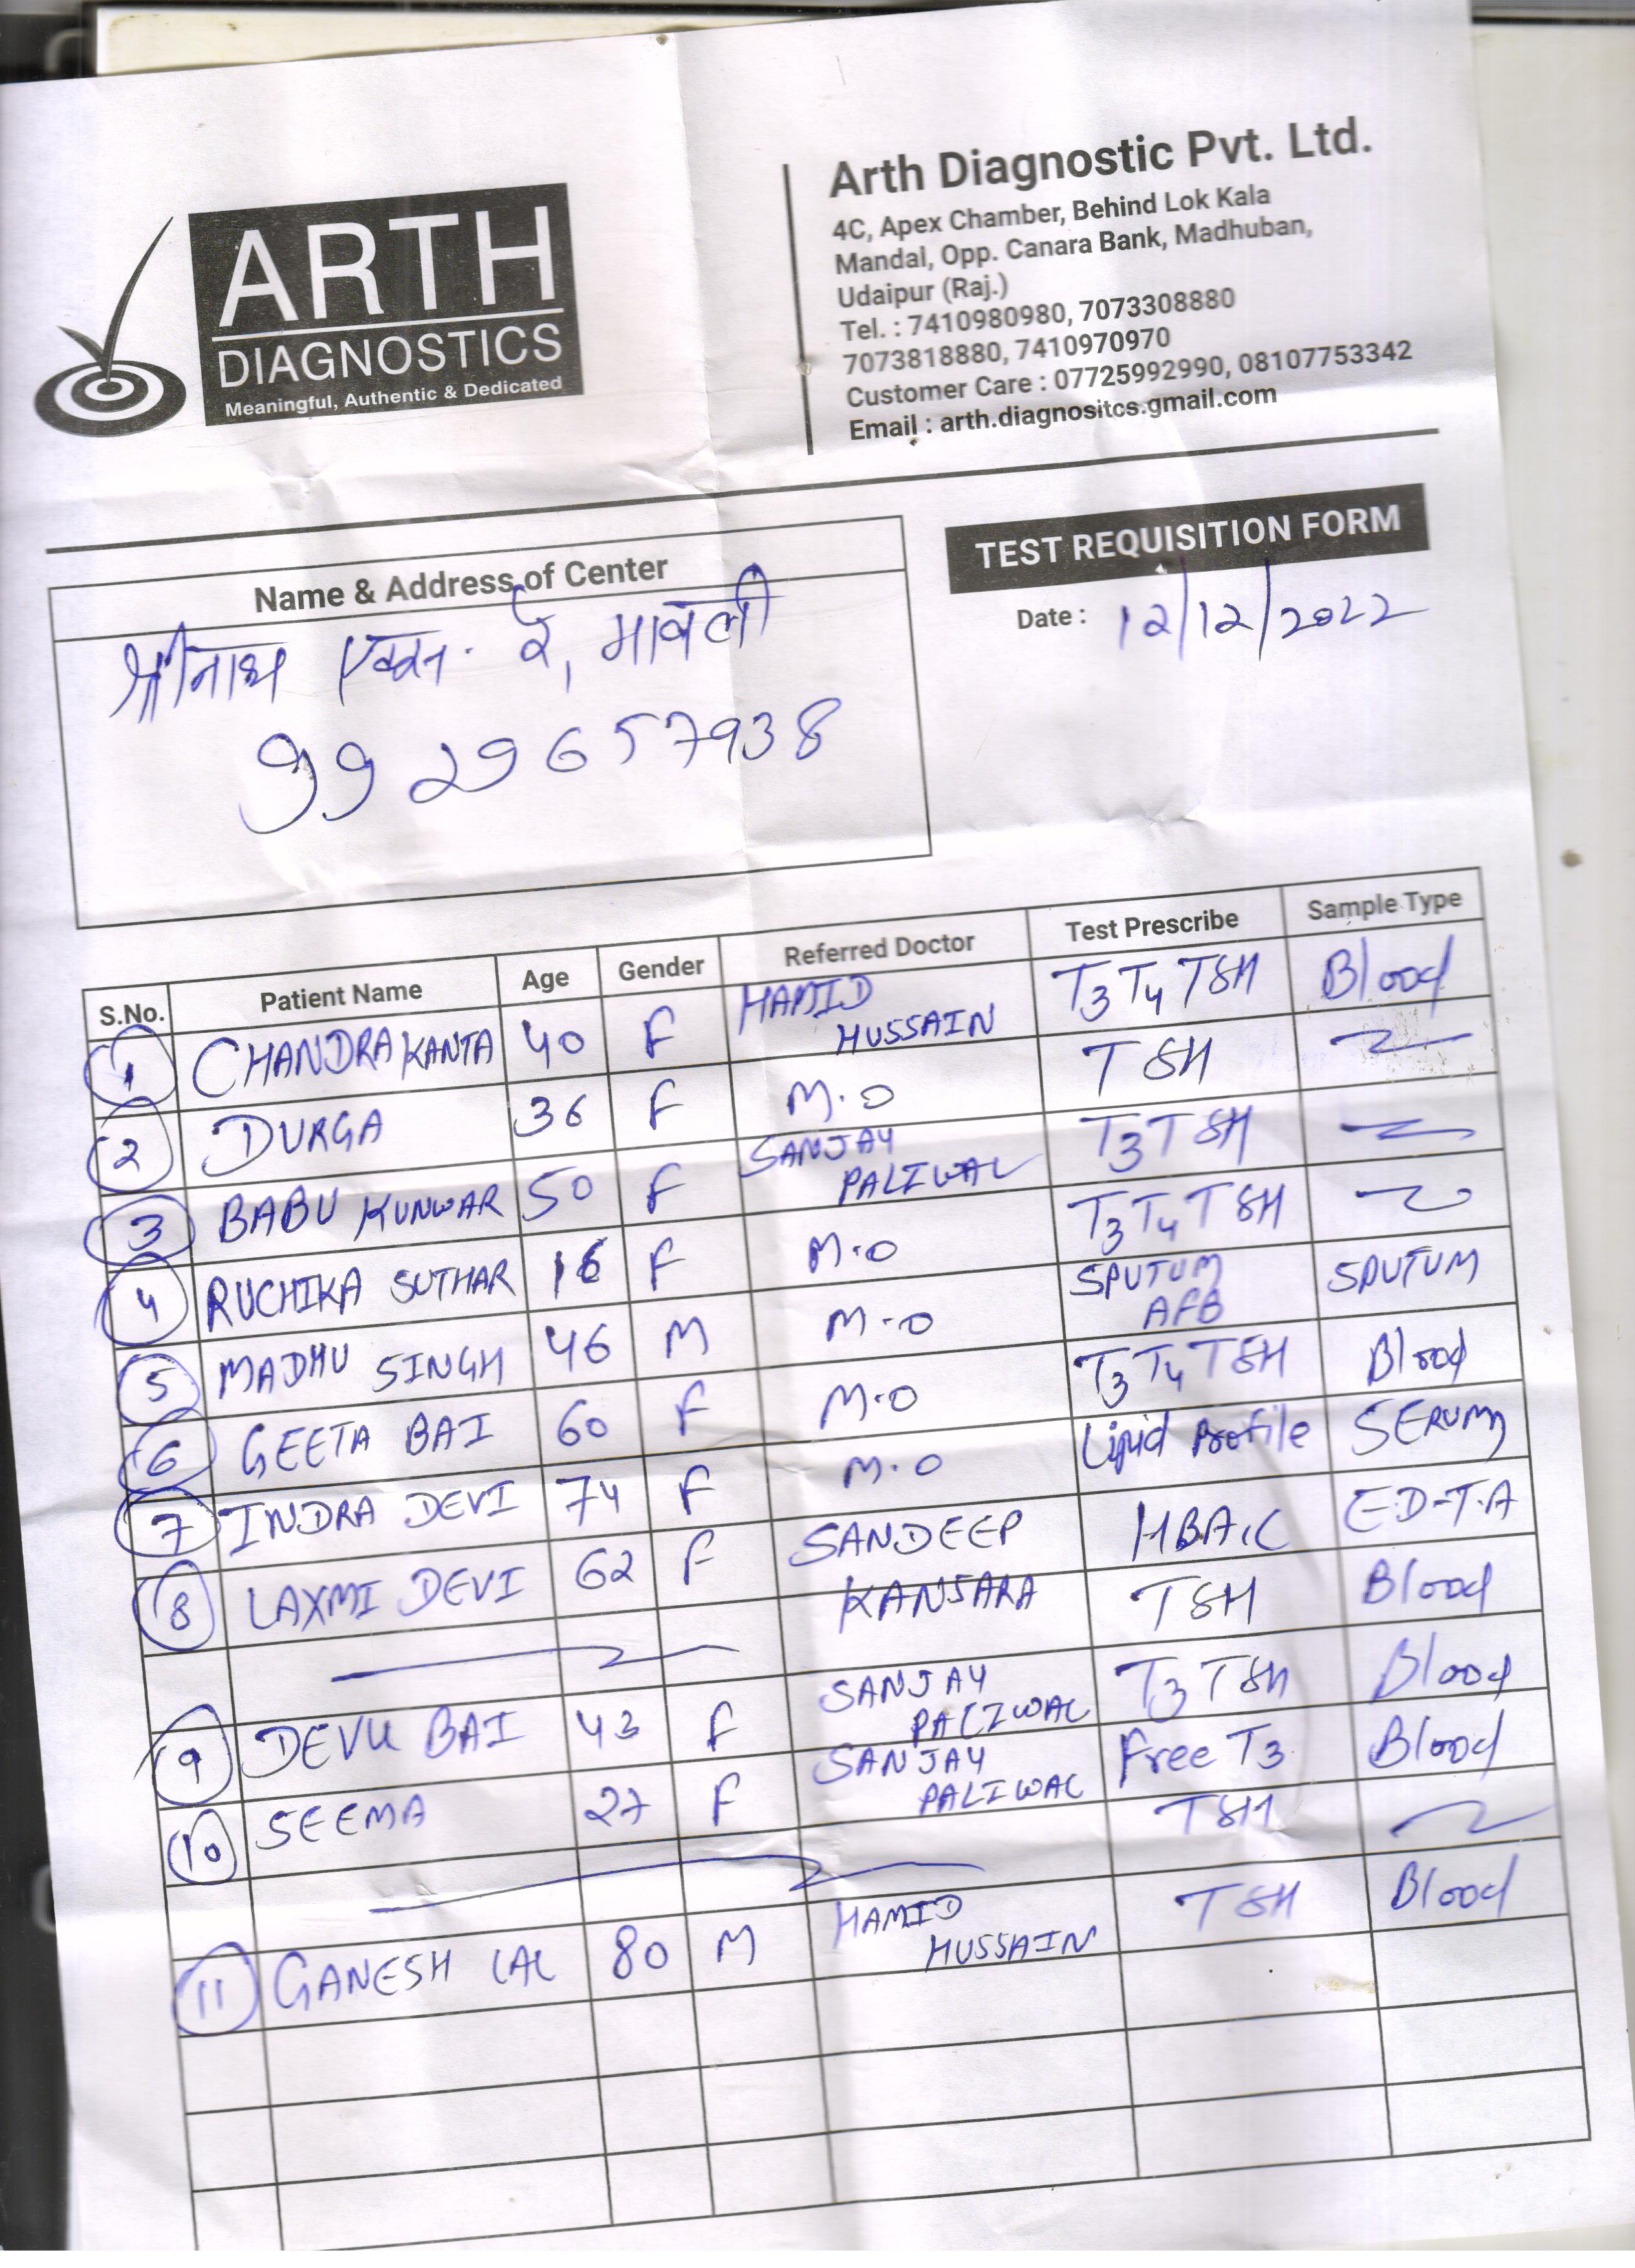 ARTH
DIAGNOSTICS
Meaningful, Authentic & Dedicated
Arth Diagnostic Pvt. Ltd.
4C, Apex Chamber, Behind Lok Kala
Mandal, Opp. Canara Bank, Madhuban,
Udaipur (Raj.)
Tel. : 7410980980, 7073308880
7073818880, 7410970970
Customer Care : 07725992990, 08107753342
Email : arth.diagnositcs.gmail.com
TEST REQUISITION FORM
Date : 12/12/2022
Name & Address of Center
श्रीनाथ एक्स. रे, मावली
9929657938
S.No. Patient Name Age Gender Referred Doctor Test Prescribe Sample Type
1 CHANDRAKANTA 40 F HAMID HUSSAIN T3 T4 TSH Blood
2 DURGA 36 F M.O TSH
3 BABU KUNWAR 50 F SANJAY PALIWAL T3 TSH
4 RUCHIKA SUTHAR 16 F M.O T3 T4 TSH
5 MADHU SINGH 46 M M.O SPUTUM AFB SPUTUM
6 GEETA BAI 60 F M.O T3 T4 TSH Blood
7 INDRA DEVI 74 F M.O Lipid Profile SERUM
8 LAXMI DEVI 62 F SANDEEP HBA1C E.D-T.A
KANSARA TSH Blood
9 DEVU BAI 43 F SANJAY PALIWAL T3 TSH Blood
10 SEEMA 27 F SANJAY PALIWAL Free T3 Blood
TSH
11 GANESH LAL 80 M HAMID HUSSAIN TSH Blood